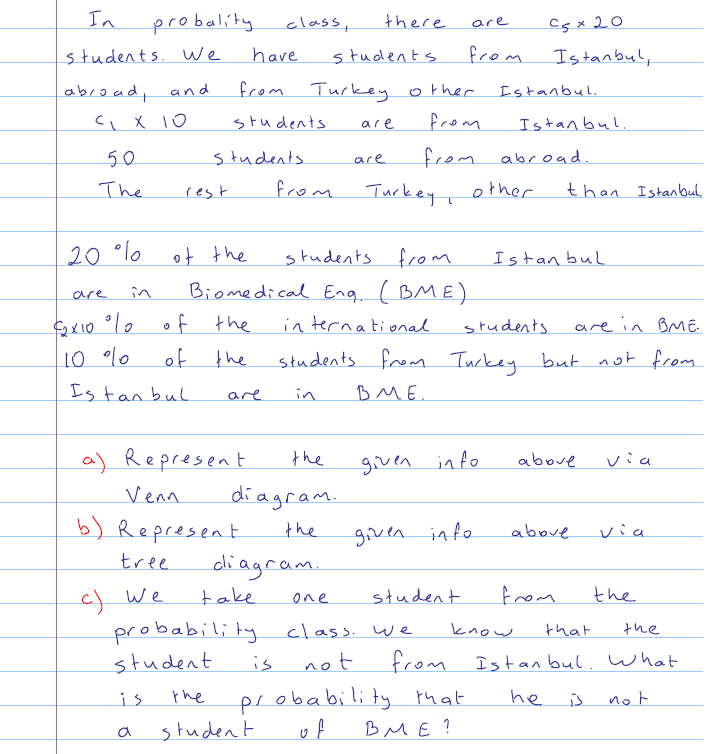 In probality class, there are c5 x 20
students. We have students from Istanbul,
abroad, and from Turkey other Istanbul.
c1 x 10 students are from Istanbul.
50 students are from abroad.
The rest from Turkey, other than Istanbul
20 % of the students from Istanbul
are in Biomedical Eng. (BME)
c2x10 % of the international students are in BME.
10 % of the students from Turkey but not from
Istanbul are in BME.
a) Represent the given info above via
Venn diagram.
b) Represent the given info above via
tree diagram.
c) We take one student from the
probability class. We know that the
student is not from Istanbul. What
is the probability that he is not
a student of BME?